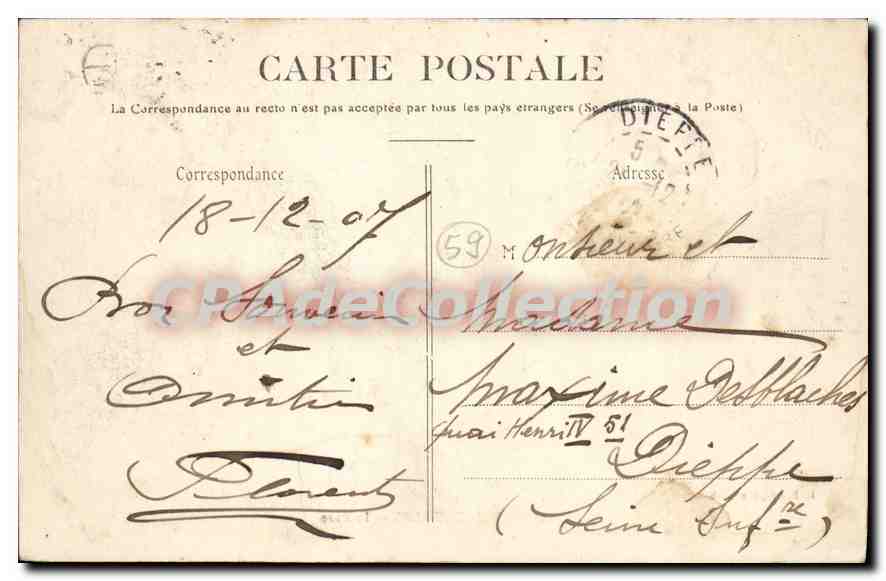 CARTE POSTALE
La Correspondance au recto n'est pas acceptée par tous les pays etrangers (Se renseigner à la Poste)
DIEPPE
5
12
Correspondance
Adresse
18-12-07
Bon Souvenir
et
Amitié
Florent
59
Monsieur et
Madame
Maxime Desblaches
Quai Henri IV 51
Dieppe
(Seine Infre)
CPAdeCollection